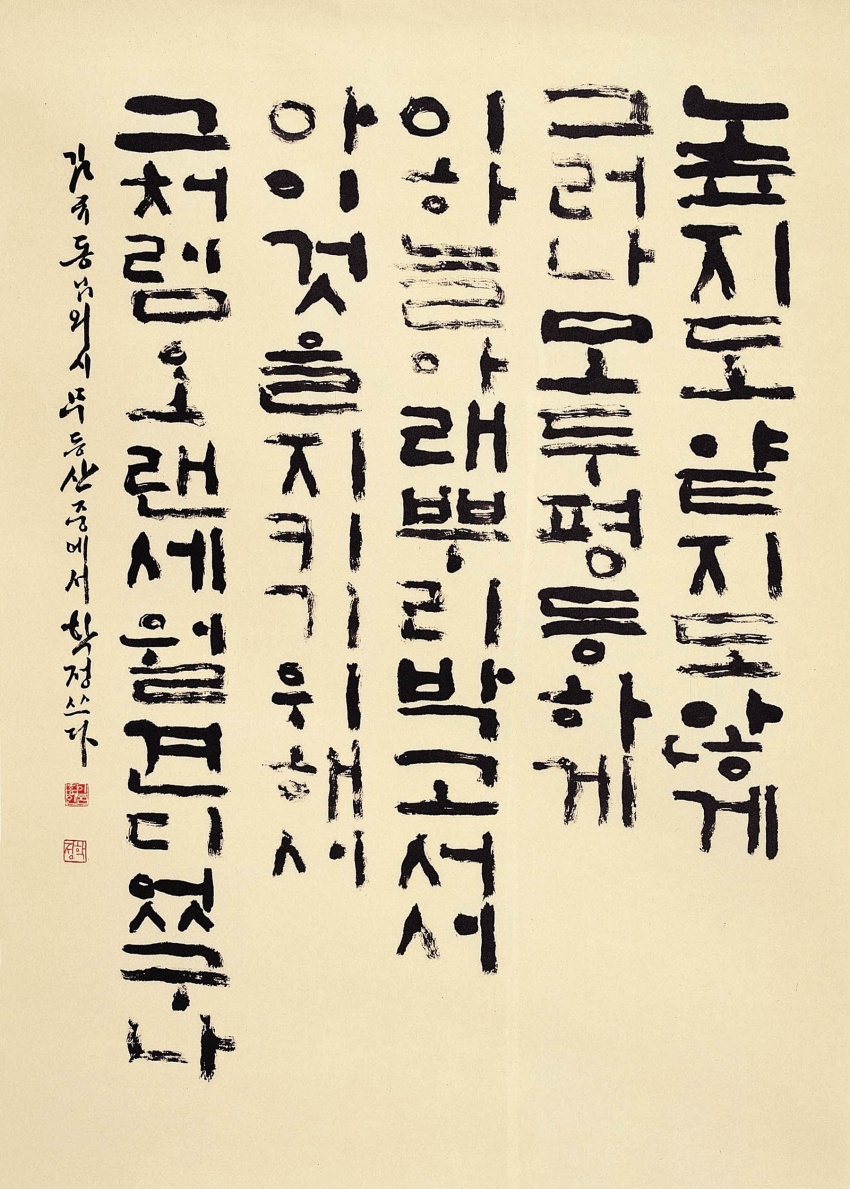 높지도얕지도않게
그러나모두평등하게
이하늘아래뿌리박고서서
아이것을지키기위해서
그처럼오랜세월견디었구나
김규동님의시무등산중에서학정쓰다
이돈흥
학정